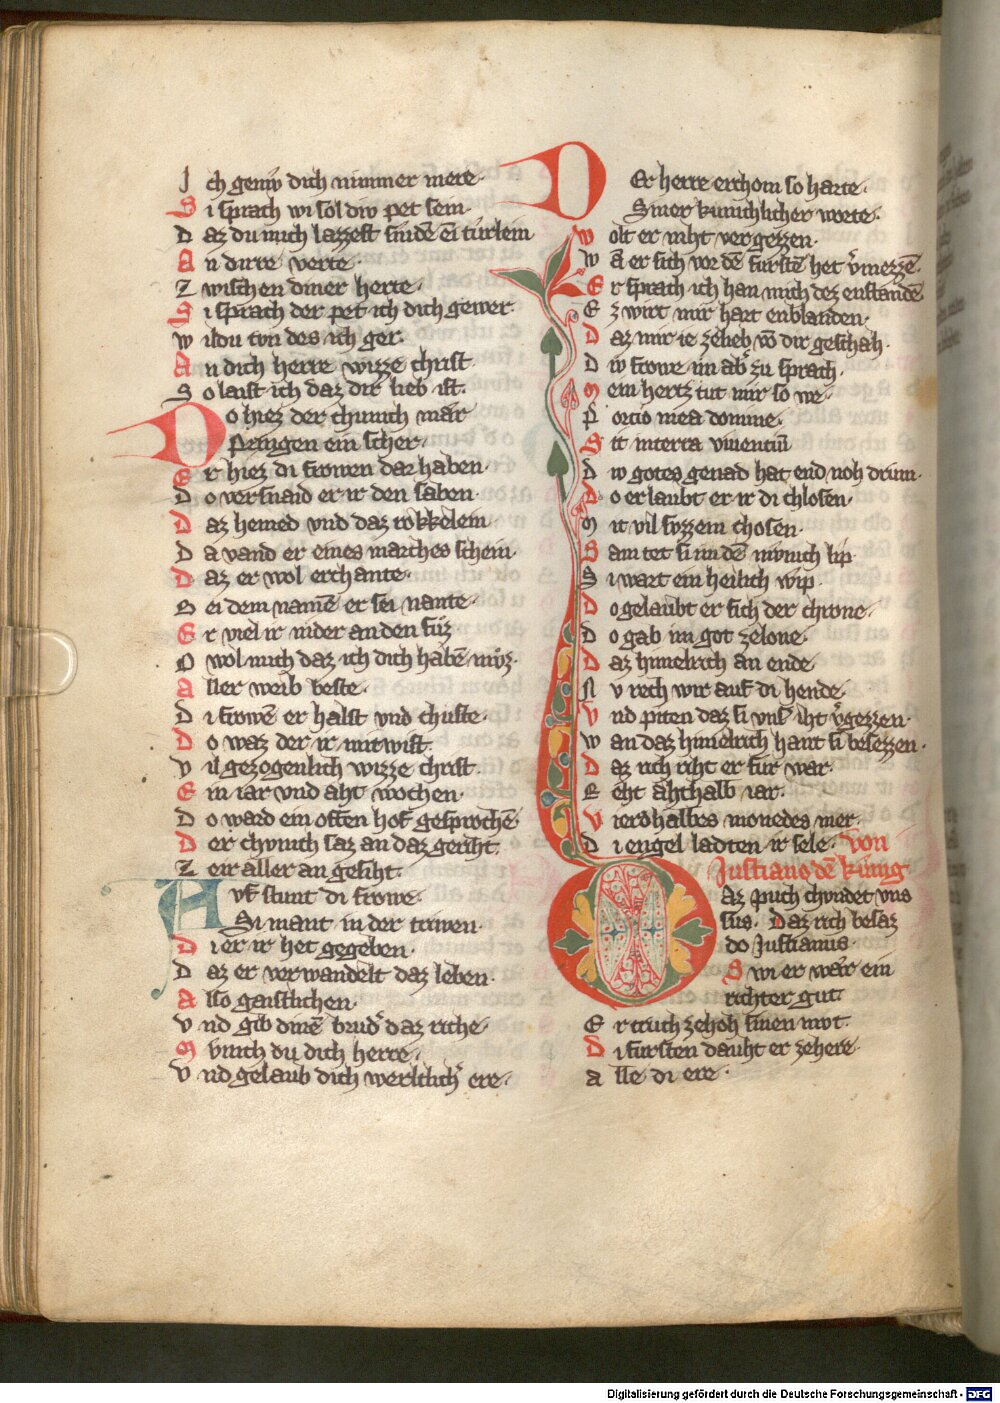 I ch geniw dich nimmer mere·
S i sprach wi sol div pet sein·
D az du mich lazzest sindē ei türlein
A n dirre verte·
Z wischen diner herte·
S i sprach der pet ich dich gewer·
W ildu tvn des ich ger·
A n dich herre wizze christ·
S o laist ich daz dir lieb ist·
Do hiez der chunich mar
Pringen ein scher·
E r hiez di frowen dar haben·
D o versnaid er ir den saben·
D az hemed vnd daz rokkelein
D a vand er eines marches schein·
D az er wol erchante·
B ei dem namē er sei nante·
E r viel ir nider an den fůz
O wol mich daz ich dich habē můz·
A ller weib beste·
D i frowē er halst vnd chuste·
D o waz der ir mitwist·
V il gezogenlich wizze christ·
E in iar vnd aht wochen·
D o ward ein offen hof gesprochē
D er chvnich saz an daz geriht·
Z eir aller an gesiht·
Avf stunt di frowe·
Si mant in der triwen
D i er ir het gegeben·
D az er verwandelt daz leben·
A lso gaistlichen·
V nd gib dinē brud' daz riche·
M vnich du dich herre·
V nd gelaub dich werltlich' ere·
Der herre erchom so harte·
Siner kunichlicher worte·
W olt er niht vergezzen·
W a er sich vor dē furstē het v'mezzē
E r sprach ich han mich dez enstandē
E z wirt mir hart enblanden·
D az mir ie zelieb vō dir geschah·
D iv frowe im ab' zu sprach·
M ein hertz tut mir so we·
P orcio mea domine·
S it in terra viuentiū
D iv gotes genad hat end noh drum·
D o erlaubt er ir di chlosen·
M it vil svzzem chosen·
S am tet si im dē mvnich lip
S i wart ein heilich wip·
D o gelaubt er sich der chrone·
D o gab im got zelone·
D az himelrich an ende·
N v rech wir auf di hende·
V nd piten daz si vns iht v'gezzen·
W an daz himelrich hant si besezzen·
D az rich riht er fur war·
R eht ahthalb iar·
V ierdhalbes monedes mer·
D i engel ladten ir sele· von
Justiano dē kunig
Daz puch chvndet vns
sus· Daz rich besaz
do Justianus·
S wi er wår ein
richter gut·
E r truch zehoh sinen mvt·
D i fursten dauht er zehere·
A lle di ere·
Digitalisierung gefördert durch die Deutsche Forschungsgemeinschaft - DFG